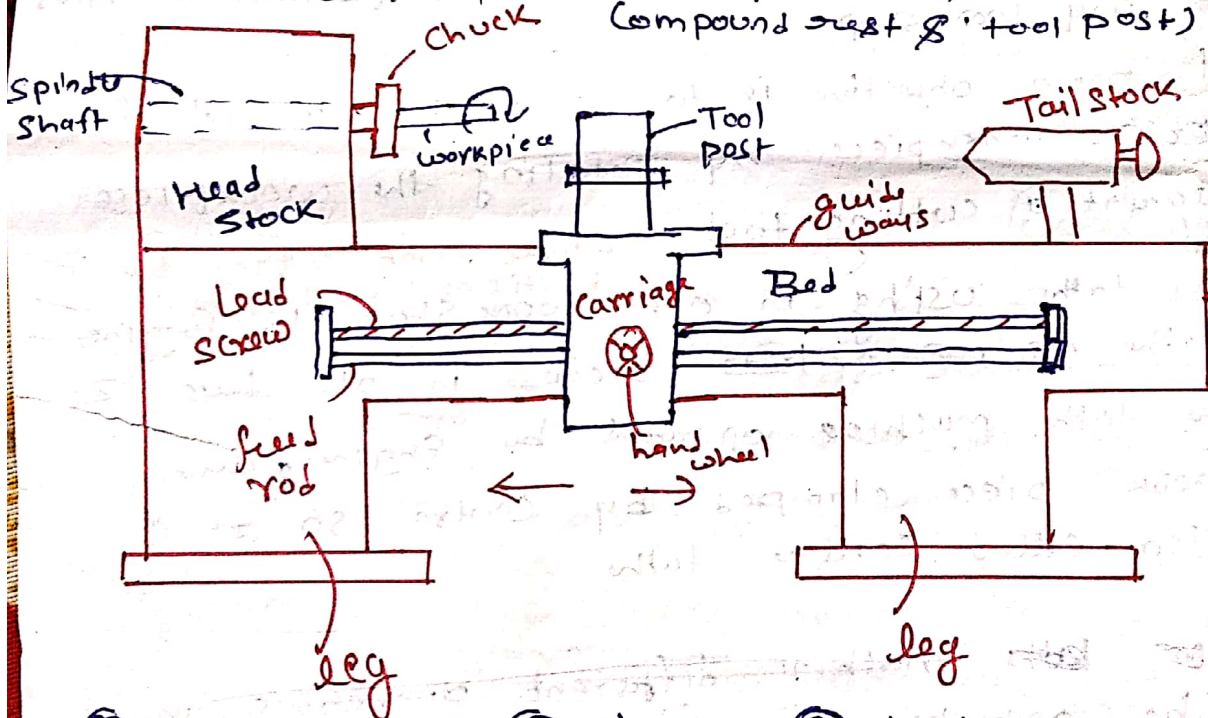 Compound rest & tool post)
Chuck
Spindle
Shaft
workpiece
Tool
post
Tail Stock
Head
Stock
guide
ways
Lead
screw
Carriage
Bed
feed
rod
hand
wheel
leg
leg